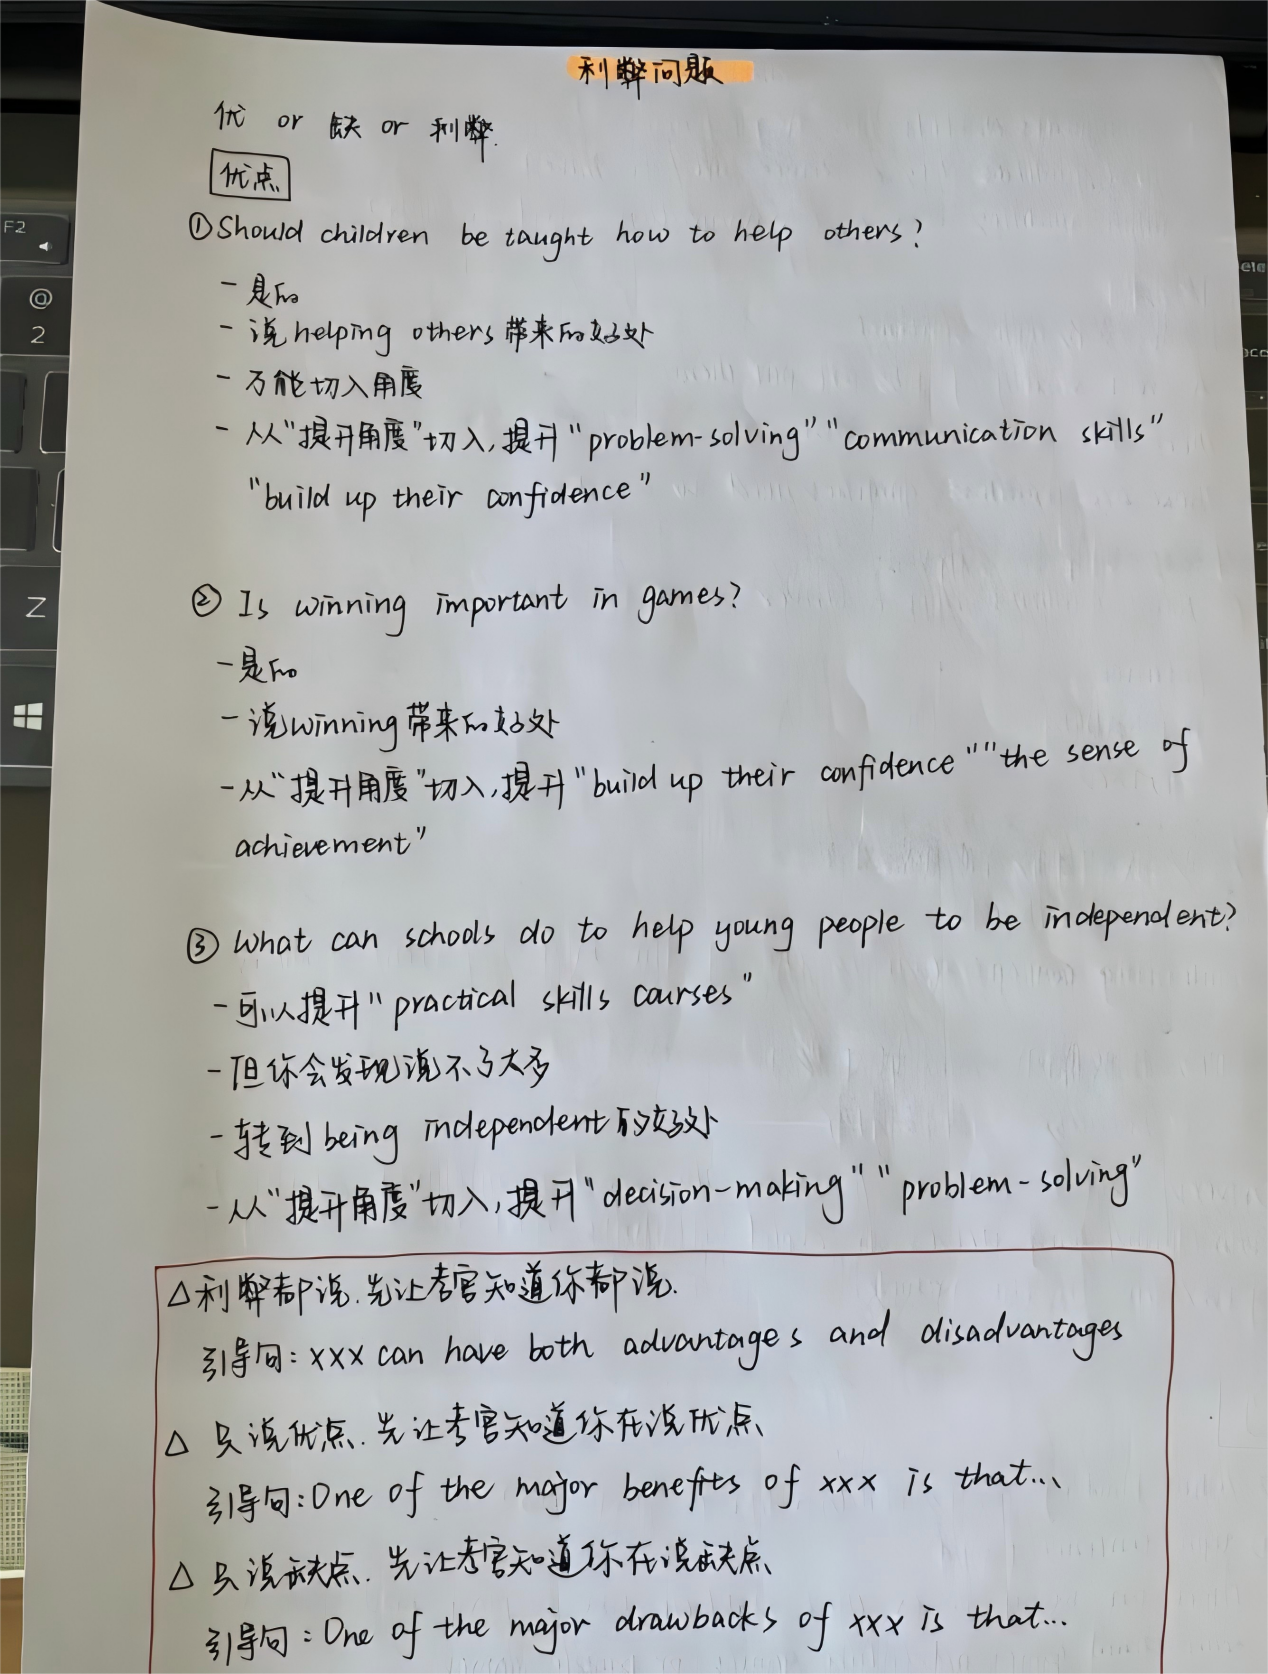 利弊问题
优 or 缺 or 利弊.
优点
①Should children be taught how to help others?
- 是的
- 说helping others带来的好处
- 万能切入角度
- 从"提升角度"切入,提升"problem-solving""communication skills"
"build up their confidence"
② Is winning important in games?
- 是的
- 说winning带来的好处
- 从"提升角度"切入,提升"build up their confidence""the sense of
achievement"
③ What can schools do to help young people to be independent?
- 可以提升"practical skills courses"
- 但你会发现说不了太多
- 转到being independent的好处
- 从"提升角度"切入,提升"decision-making""problem-solving"
△利弊都说.先让考官知道你都说.
引导句:xxx can have both advantages and disadvantages
△ 只说优点.先让考官知道你在说优点
引导句:One of the major benefits of xxx is that...
△ 只说缺点.先让考官知道你在说缺点
引导句:One of the major drawbacks of xxx is that...
F2
@
2
Z